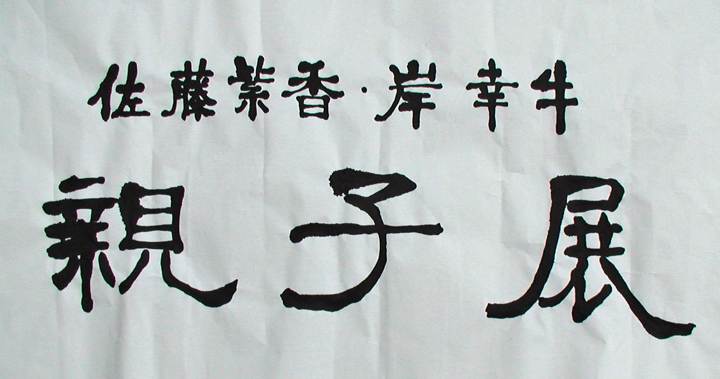 佐藤紫香・岸幸牛
親子展